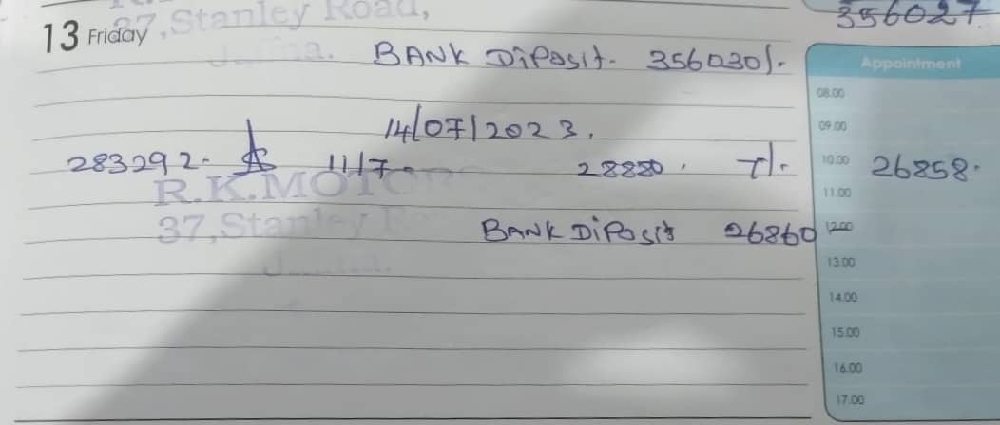 37, Stanley Road,
356027
13 Friday
BANK DiPosit. 356030/-
Appointment
08.00
14/07/2023.
09.00
283292- 11/7 28880. 7/. 10.00 26858.
R.K.MOTO
11.00
37, Stanley
BANK DiPosit 26860
12.00
13.00
14.00
15.00
16.00
17.00